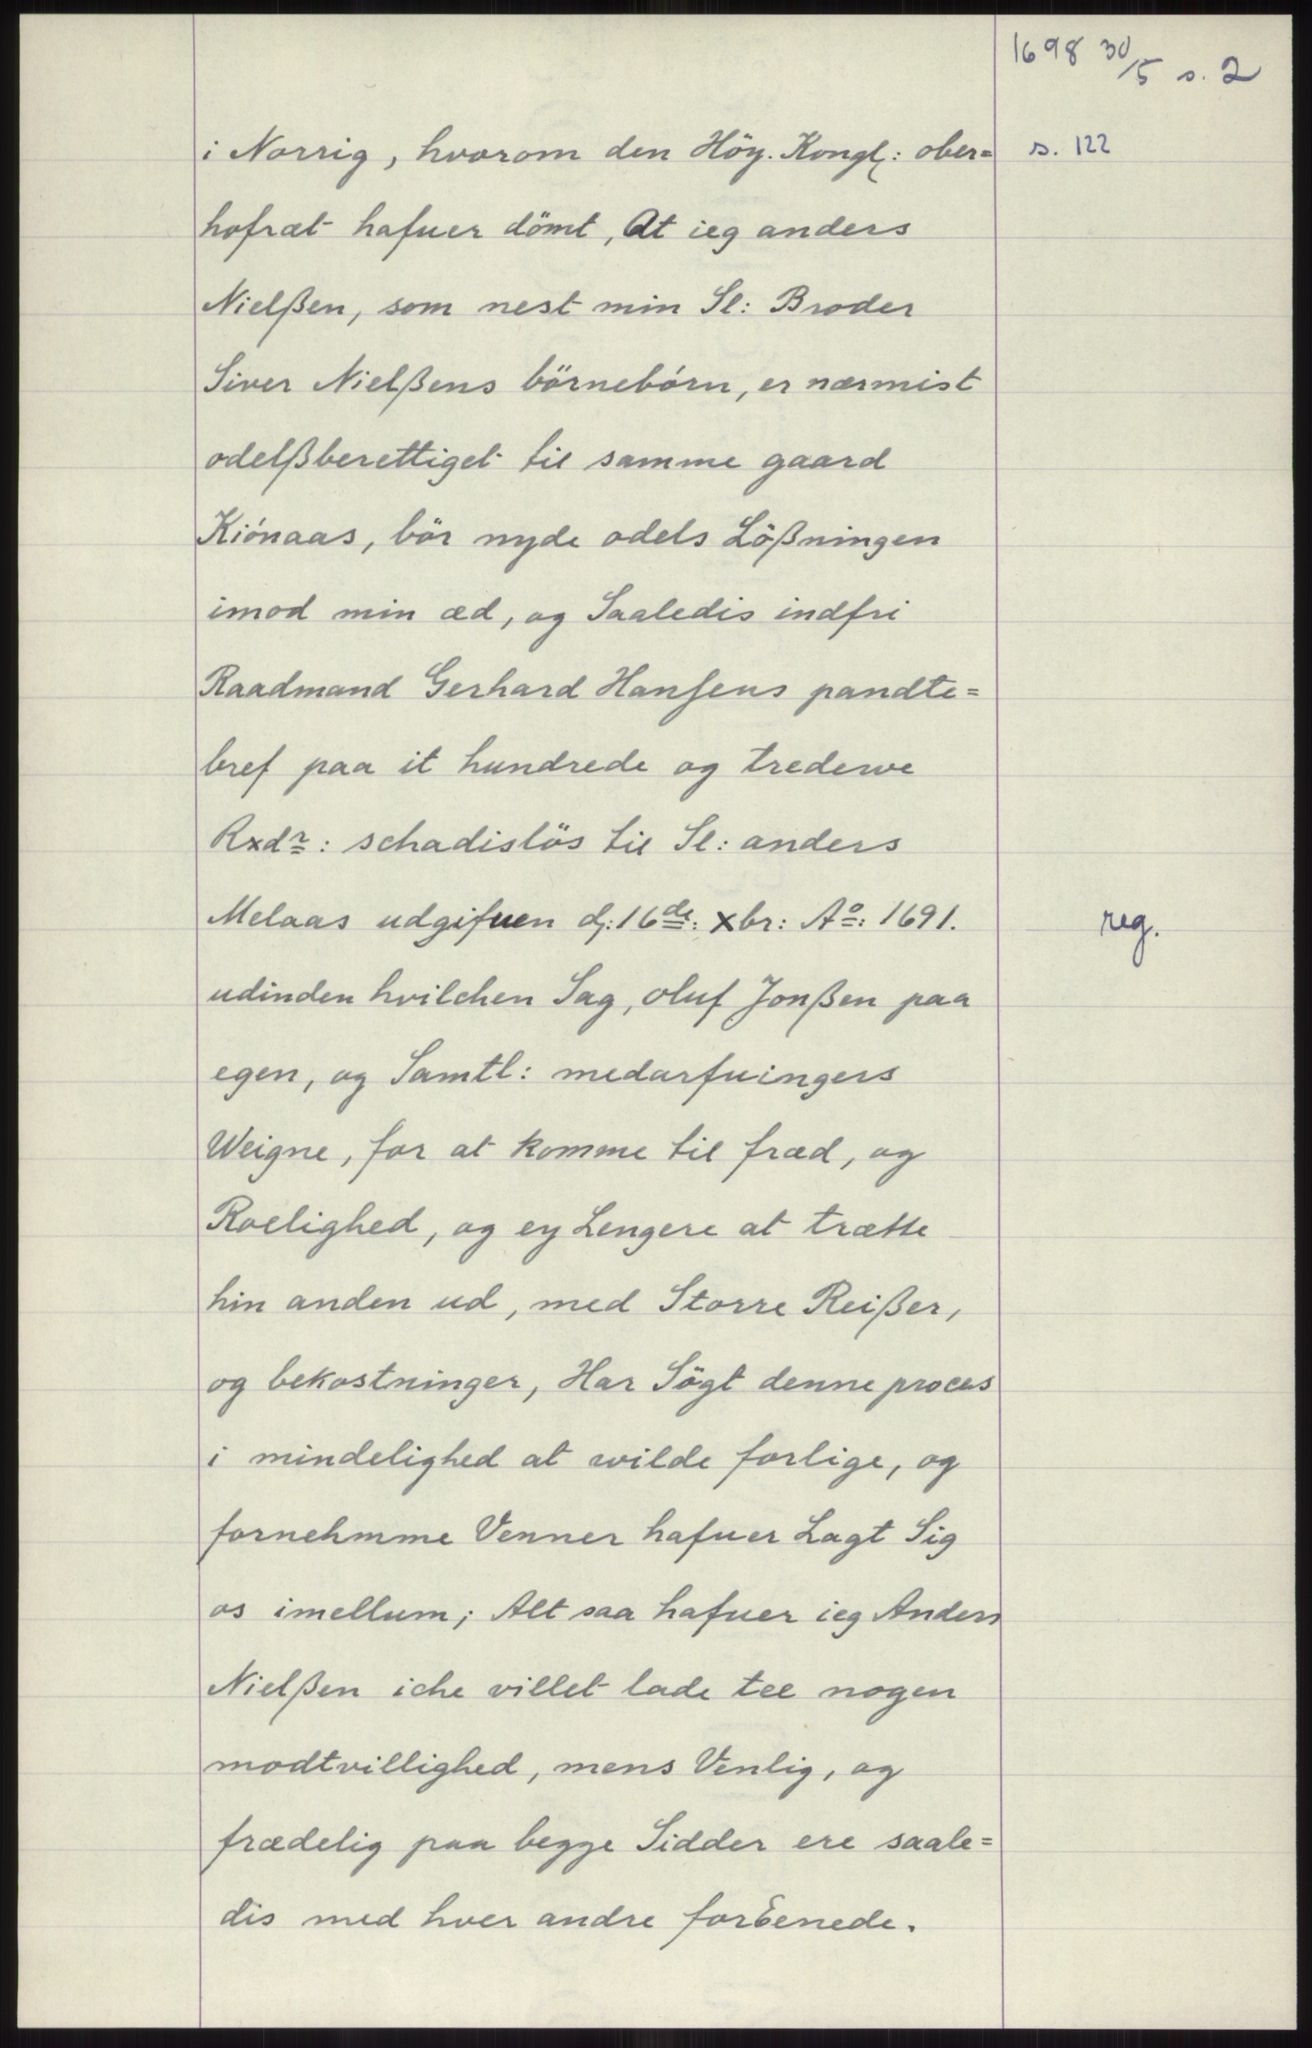 1698 30/5 s. 2
i Norrig, hvorom den Höy. Kongl: ober=
s. 122
hofræt hafuer dömt, At ieg anders
Nielßen, som nest min Sl: Broder
Siver Nielßens börnebórn, er nærmist
odelßberettiget til samme gaard
Kiónaas, bör nyde odels Lößningen
imod min æd, og Saaledis indfri
Raadmand Gerhard Hansens pandte=
bref paa it hundrede og tredewe
Rxdr: schadislös til Sl: anders
Melaas udgifuen d: 16de: xbr: Ao: 1691.
reg.
udinden hvilchen Sag, oluf Jonßen paa
egen, og Samtl: medarfuingers
Weigne, for at komme til fræd, og
Roelighed, og ey Lengere at trætte
hin anden ud, med Storre Reißer,
og bekostninger, Har Sögt denne proces
i mindelighed at wilde forlige, og
fornehmme Venner hafuer Lagt Sig
os imellum; Alt saa hafuer ieg Anders
Nielßen iche villet lade tee nogen
modtvillighed, mens Venlig, og
frædelig paa begge Sidder ere saale=
dis med hver andre forEenede.